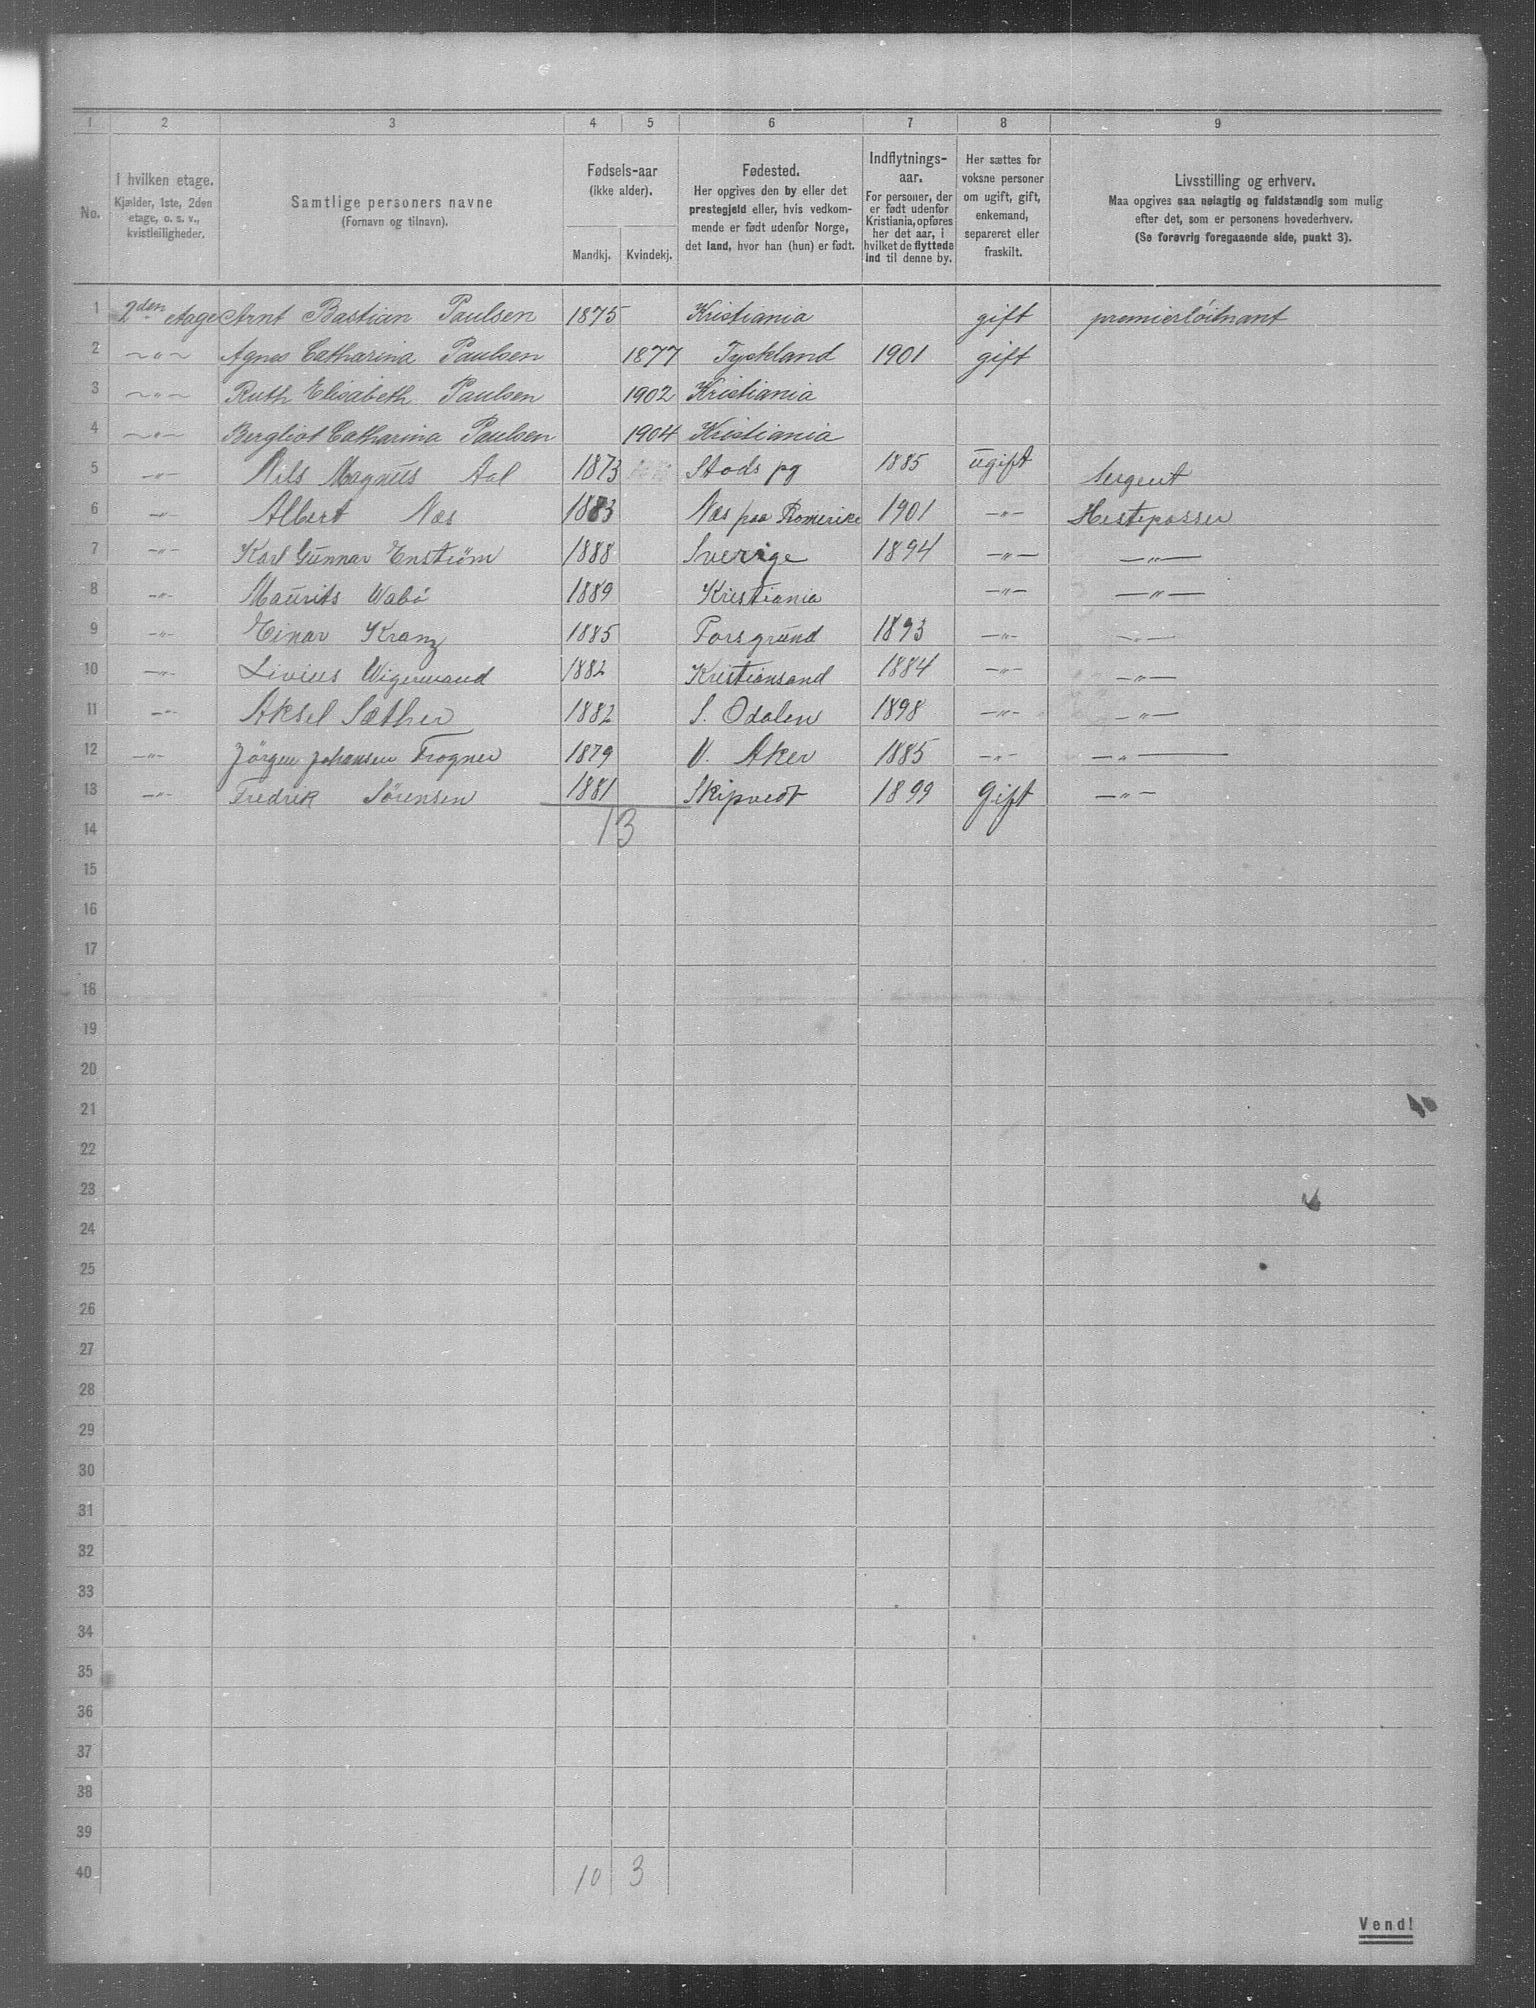 1 2 3 4 5 6 7 8 9
No.
I hvilken etage.
Kjælder, 1ste, 2den
etage, o. s. v.,
kvistleiligheder.
Samtlige personers navne
(Fornavn og tilnavn).
Fødsels-aar
(ikke alder).
Mandkj. Kvindekj.
Fødested.
Her opgives den by eller det
prestegjeld eller, hvis vedkom-
mende er født udenfor Norge,
det land, hvor han (hun) er født.
Indflytnings-
aar.
For personer, der
er født udenfor
Kristiania, opføres
her det aar, i
hvilket de flyttede
ind til denne by.
Her sættes for
voksne personer
om ugift, gift,
enkemand,
separeret eller
fraskilt.
Livsstilling og erhverv.
Maa opgives saa nøiagtig og fuldstændig som mulig
efter det, som er personens hovederhverv.
(Se forøvrig foregaaende side, punkt 3).
1 2den Etage Arnt Bastian Paulsen 1875 Kristiania gift premierløitnant
2 ~"~ Agnes Catharina Paulsen 1877 Tyskland 1901 gift
3 ~"~ Ruth Elisabeth Paulsen 1902 Kristiania
4 ~"~ Bergliot Catharina Paulsen 1904 Kristiania
5 -"- Nils Magnus Aal 1873 Stods pg 1885 ugift Sergent
6 -"- Albert Næs 1883 Næs paa Romerike 1901 -"- Hestepasser
7 -"- Karl Gunnar Enstrøm 1888 Sverige 1894 -"- -"-
8 -"- Maurits Wabö 1889 Kristiania -"- -"-
9 -"- Einar Kranz 1885 Porsgrund 1893 -"- -"-
10 -"- Livius Wigemoand 1882 Kristiansand 1884 -"- -"-
11 -"- Aksel Sæther 1882 S. Odalen 1898 -"- -"-
12 -"- Jörgen Johansen Frogner 1879 V. Aker 1885 -"- -"-
13 -"- Fredrik Sörensen 1881 Skipvedt 1899 Gift -"-
14 13
15
16
17
18
19
20
21
22
23
24
25
26
27
28
29
30
31
32
33
34
35
36
37
38
39
40 10 3
Vend!